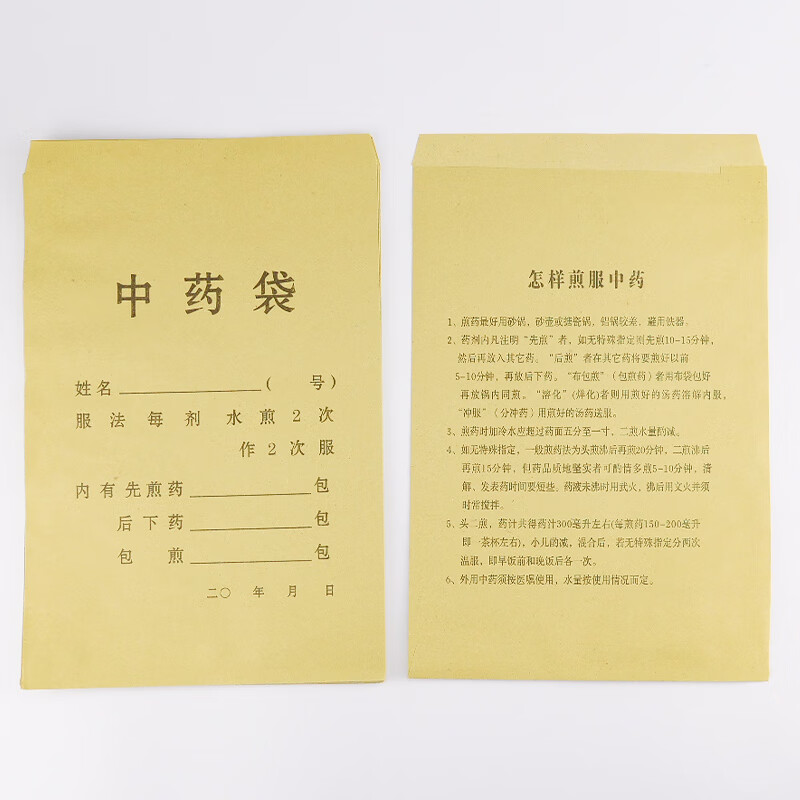 中药袋
姓名____________( 号)
服法每剂水煎2次
作2次服
内有先煎药__________包
后下药__________包
包煎__________包
二〇 年 月 日
怎样煎服中药
1、煎药最好用砂锅，砂壶或搪瓷锅，铝锅较差，避用铁器。
2、药剂内凡注明“先煎”者，如无特殊指定则先煎10-15分钟，
然后再放入其它药。“后煎”者在其它药将要煎好以前
5-10分钟，再放后下药。“布包煎”（包煎药）者用布袋包好
再放锅内同煎。“溶化”(烊化)者则用煎好的汤药溶解内服，
“冲服”（分冲药）用煎好的汤药送服。
3、煎药时加冷水应超过药面五分至一寸，二煎水量酌减。
4、如无特殊指定，一般煎药法为头煎沸后再煎20分钟，二煎沸后
再煎15分钟，但药品质地坚实者可酌情多煎5-10分钟，清
解、发表药时间要短些。药液未沸时用武火，沸后用文火并须
时常搅拌。
5、头二煎，药汁共得药汁300毫升左右(每煎药150-200毫升
即一茶杯左右)，小儿酌减，混合后，若无特殊指定分两次
温服，即早饭前和晚饭后各一次。
6、外用中药须按医嘱使用，水量按使用情况而定。